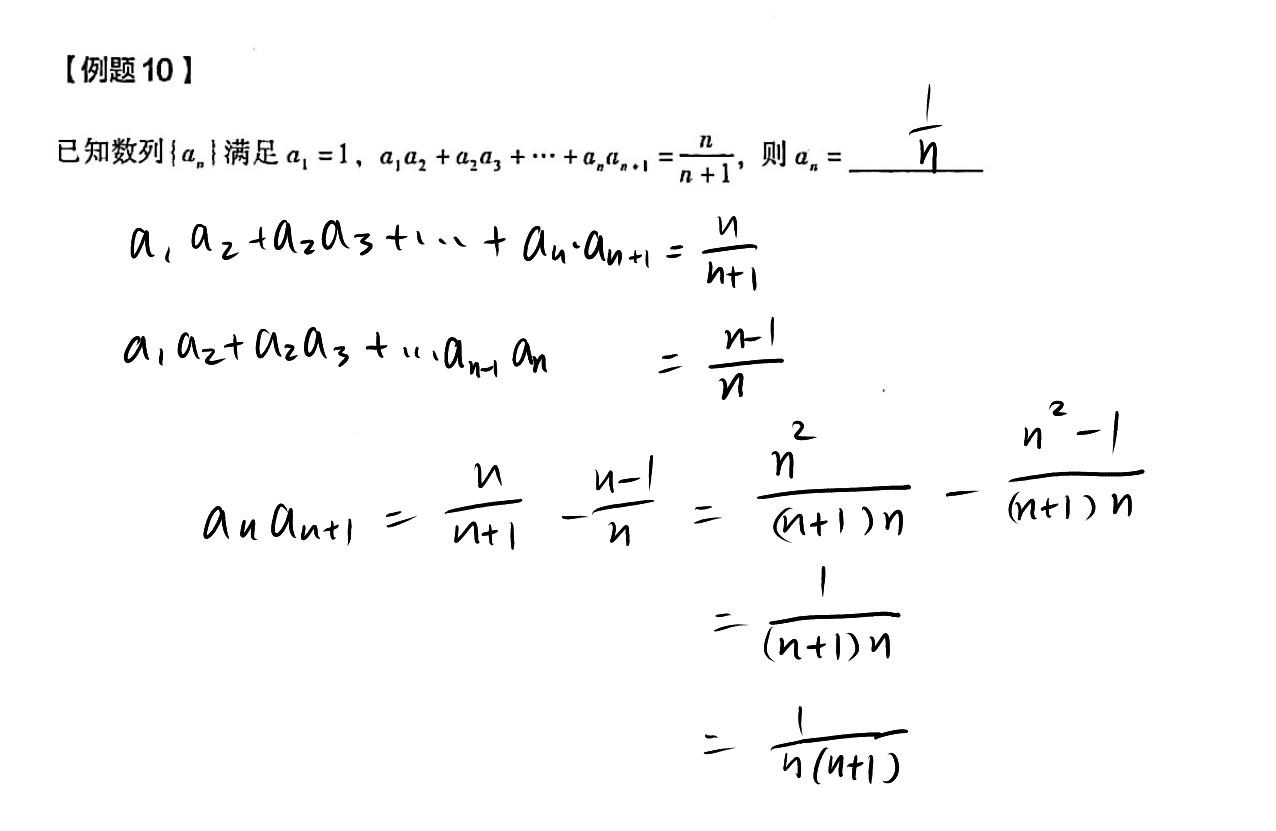 【例题10】
已知数列{aₙ}满足a₁=1，a₁a₂+a₂a₃+⋯+aₙaₙ₊₁=n/(n+1)，则aₙ=1/n
a₁a₂+a₂a₃+⋯+aₙ·aₙ₊₁=n/(n+1)
a₁a₂+a₂a₃+⋯aₙ₋₁aₙ=(n-1)/n
aₙaₙ₊₁=n/(n+1)-(n-1)/n=n²/((n+1)n)-(n²-1)/((n+1)n)
=1/((n+1)n)
=1/(n(n+1))